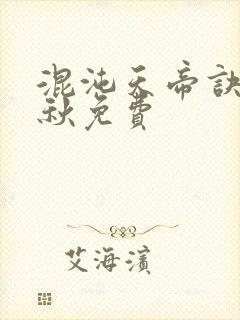 混沌天帝訣
秋免費
艾海濱